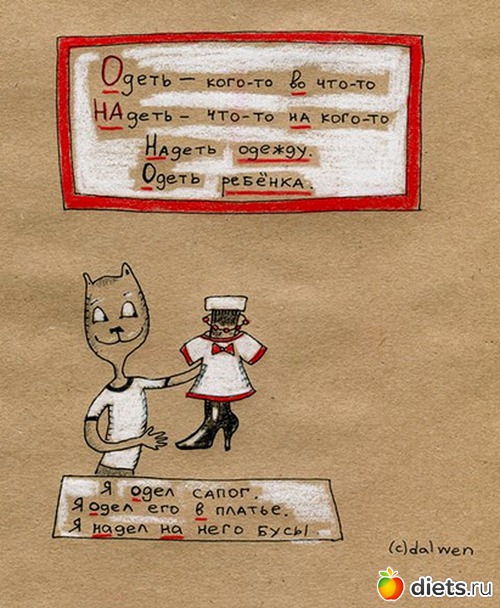 Одеть – кого-то во что-то
НАдеть – что-то на кого-то
Надеть одежду.
Одеть ребёнка.
Я одел сапог.
Я одел его в платье.
Я надел на него бусы
(c)dalwen
diets.ru